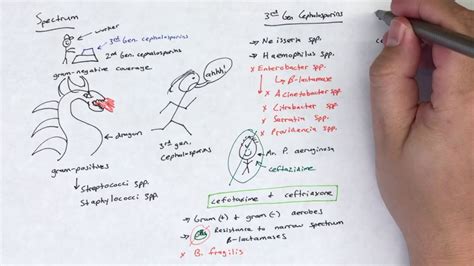 Spectrum
worker
3rd Gen. cephalosporins
2nd Gen. cephalosporins
gram-negative coverage
ahhh!
dragon
3rd gen. cephalosporins
gram-positives
Streptococci spp.
Staphylococci spp.
3rd Gen Cephalosporins
→ Neisseria spp.
→ Haemophilus spp.
x Enterobacter spp.
β-lactamase
x Acinetobacter spp.
x Citrobacter spp.
x Serratia spp.
x Providencia spp.
An. P. aeruginosa
ceftazidime
cefotaxime + ceftriaxone
→ Gram (+) + gram (-) aerobes
→ Resistance to narrow spectrum
β-lactamases
x B. fragilis